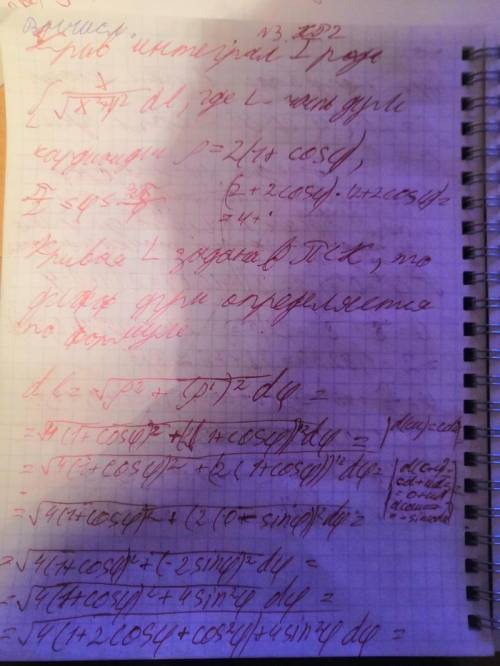 Вычисл. №3
Крив интеграл I рода
∫ x/√(x²+y²) dl, где L - часть дуги
кардиоиды ρ = 2(1+cosφ),
(2+2cosφ)·(2+2cosφ)=
= 4+
Кривая L задана в ПСК, то
дуги определяется
по формуле
dL = √(ρ² + (ρ')²) dφ =
= √(4(1+cosφ)² + (2(1+cosφ))'²) dφ =
= √(4(1+cosφ)² + (2(1+cosφ))'²) dφ =
= √(4(1+cosφ)² + (2(0-sinφ))²) dφ =
= √(4(1+cosφ)² + (-2sinφ)²) dφ =
= √(4(1+cosφ)² + 4sin²φ) dφ =
= √(4(1+2cosφ+cos²φ)+4sin²φ) dφ =